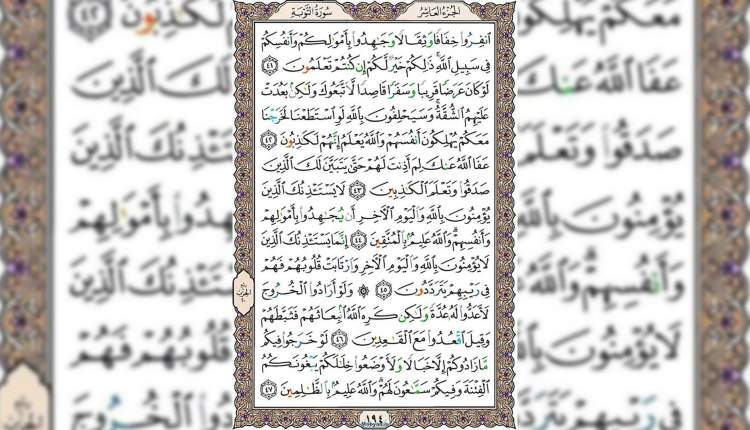 الجزء العاشر
سورة التوبة
ٱنفِرُوا۟ خِفَافًا وَثِقَالًا وَجَٰهِدُوا۟ بِأَمْوَٰلِكُمْ وَأَنفُسِكُمْ
فِى سَبِيلِ ٱللَّهِ ۚ ذَٰلِكُمْ خَيْرٌ لَّكُمْ إِن كُنتُمْ تَعْلَمُونَ ٤١
لَوْ كَانَ عَرَضًا قَرِيبًا وَسَفَرًا قَاصِدًا لَّٱتَّبَعُوكَ وَلَٰكِنۢ بَعُدَتْ
عَلَيْهِمُ ٱلشُّقَّةُ ۚ وَسَيَحْلِفُونَ بِٱللَّهِ لَوِ ٱسْتَطَعْنَا لَخَرَجْنَا
مَعَكُمْ يُهْلِكُونَ أَنفُسَهُمْ وَٱللَّهُ يَعْلَمُ إِنَّهُمْ لَكَٰذِبُونَ ٤٢
عَفَا ٱللَّهُ عَنكَ لِمَ أَذِنتَ لَهُمْ حَتَّىٰ يَتَبَيَّنَ لَكَ ٱلَّذِينَ
صَدَقُوا۟ وَتَعْلَمَ ٱلْكَٰذِبِينَ ٤٣ لَا يَسْتَـْٔذِنُكَ ٱلَّذِينَ
يُؤْمِنُونَ بِٱللَّهِ وَٱلْيَوْمِ ٱلْـَٔاخِرِ أَن يُجَٰهِدُوا۟ بِأَمْوَٰلِهِمْ
وَأَنفُسِهِمْ ۗ وَٱللَّهُ عَلِيمٌۢ بِٱلْمُتَّقِينَ ٤٤ إِنَّمَا يَسْتَـْٔذِنُكَ ٱلَّذِينَ
لَا يُؤْمِنُونَ بِٱللَّهِ وَٱلْيَوْمِ ٱلْـَٔاخِرِ وَٱرْتَابَتْ قُلُوبُهُمْ فَهُمْ
فِى رَيْبِهِمْ يَتَرَدَّدُونَ ٤٥ ۞ وَلَوْ أَرَادُوا۟ ٱلْخُرُوجَ
لَأَعَدُّوا۟ لَهُۥ عُدَّةً وَلَٰكِن كَرِهَ ٱللَّهُ ٱنۢبِعَاثَهُمْ فَثَبَّطَهُمْ
وَقِيلَ ٱقْعُدُوا۟ مَعَ ٱلْقَٰعِدِينَ ٤٦ لَوْ خَرَجُوا۟ فِيكُم
مَّا زَادُوكُمْ إِلَّا خَبَالًا وَلَأَوْضَعُوا۟ خِلَٰلَكُمْ يَبْغُونَكُمُ
ٱلْفِتْنَةَ وَفِيكُمْ سَمَّٰعُونَ لَهُمْ ۗ وَٱللَّهُ عَلِيمٌۢ بِٱلظَّٰلِمِينَ ٤٧
١٩٤